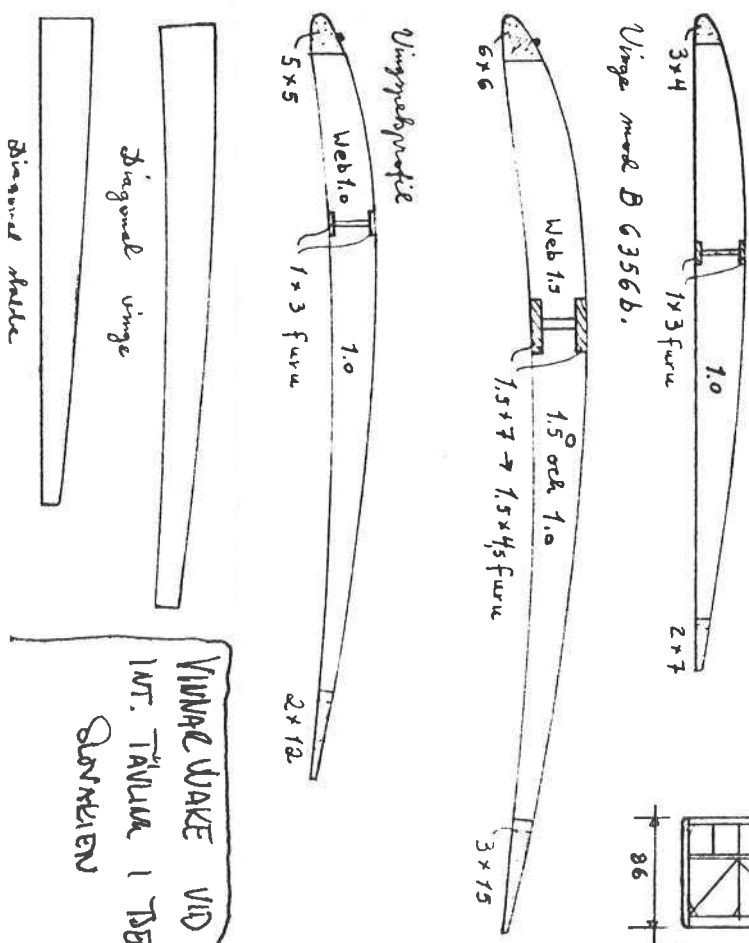 3x4
1x3 furu
1.0
2x7
86
Vinge mod B 6356b.
6x6
Web 1.5
1.5 och 1.0
1.5x7 → 1.5x4,5 furu
3x15
Vingspetsprofil
5x5
Web 1.0
1x3 furu
1.0
2x12
Diagonal vinge
Diagonal
VINNARWAKE VID
INT. TÄVLING I
SLOVAKIEN